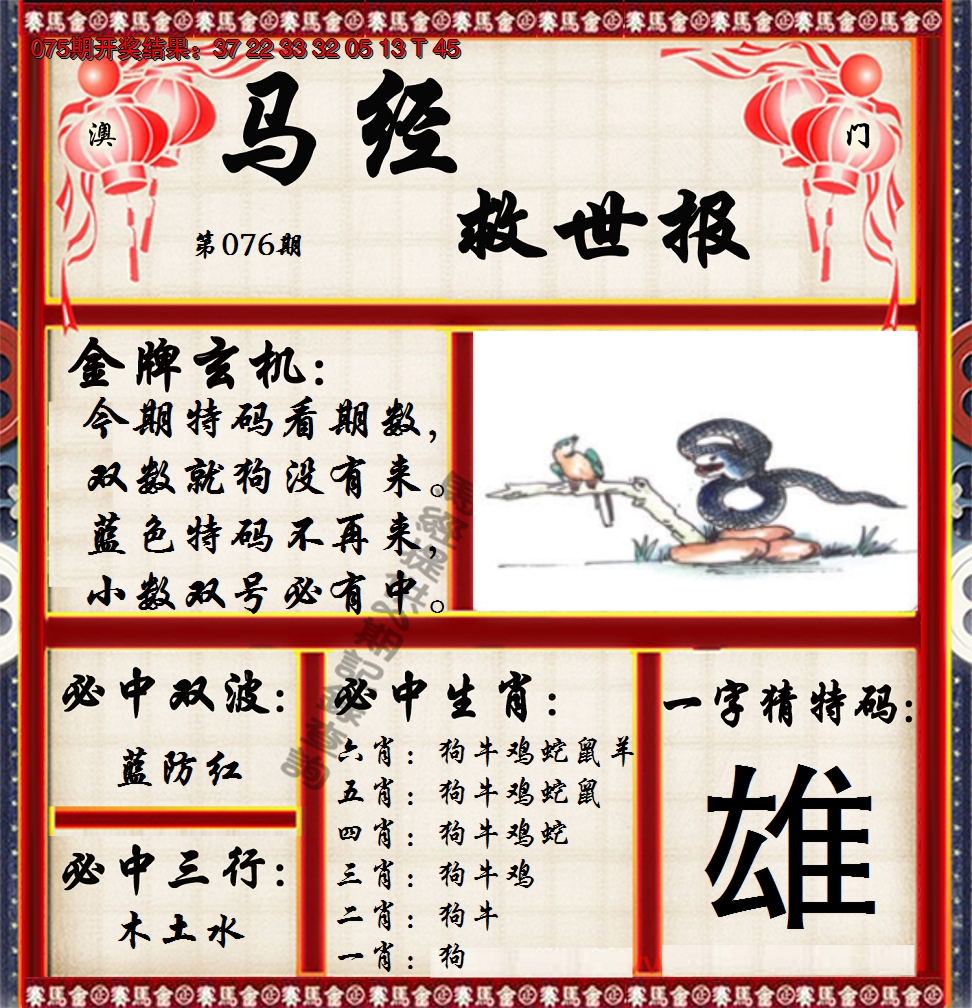 赛馬會赛馬會赛馬會赛馬會赛馬會赛馬會赛馬會
075期开奖结果：37 22 33 32 05 13 T 45
澳
门
马经
救世报
第076期
金牌玄机：
今期特码看期数，
双数就狗没有来。
蓝色特码不再来，
小数双号必有中。
必中双波：
蓝防红
必中三行：
木土水
必中生肖：
六肖：狗牛鸡蛇鼠羊
五肖：狗牛鸡蛇鼠
四肖：狗牛鸡蛇
三肖：狗牛鸡
二肖：狗牛
一肖：狗
一字猜特码：
雄